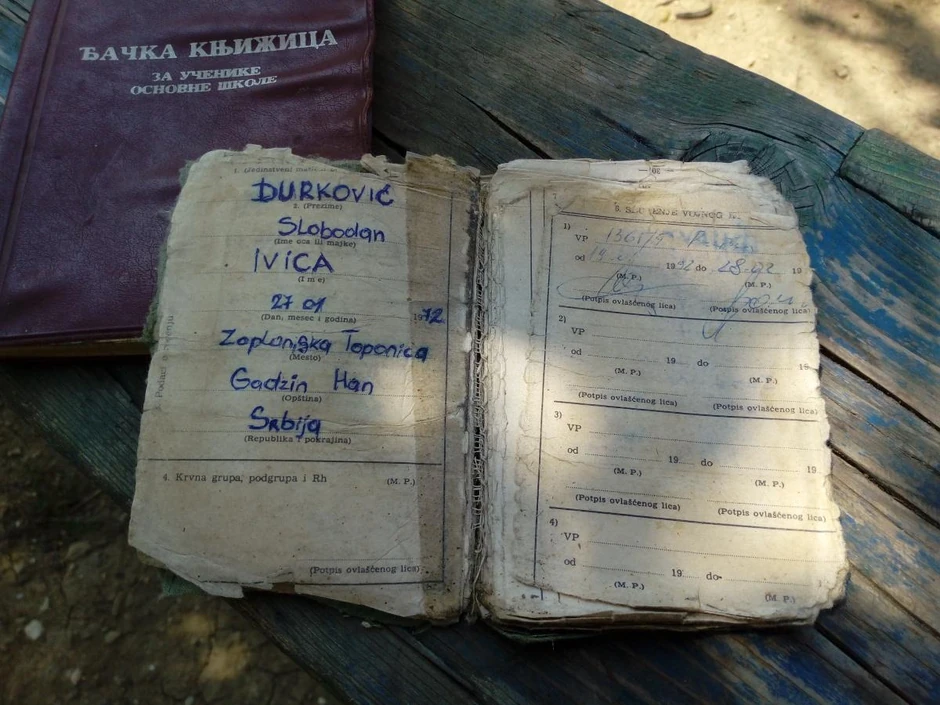 ЂАЧКА КЊИЖИЦА
ЗА УЧЕНИКЕ
ОСНОВНЕ ШКОЛЕ
1. (Jedinstveni
ĐURKOVIĆ
2. (Prezime)
Slobodan
(Ime oca ili majke)
IVICA
(Ime)
27 01 1972
(Dan, mesec i godina)
Zaplanjska Toponica
(Mesto)
Gadzin Han
(Opština)
Srbija
(Republika i pokrajina)
4. Krvna grupa, podgrupa i Rh (M. P.)
(Potpis ovlašćenog lica)
1)
VP
od 1992 do 19
(M. P.) (M. P.)
(Potpis ovlašćenog lica) (Potpis ovlašćenog lica)
2)
VP
od 19 do 19
(M. P.) (M. P.)
(Potpis ovlašćenog lica) (Potpis ovlašćenog lica)
3)
VP
od 19 do 19
(M. P.) (M. P.)
(Potpis ovlašćenog lica) (Potpis ovlašćenog lica)
4)
VP
od 19 do
(M. P.) (M. P.)